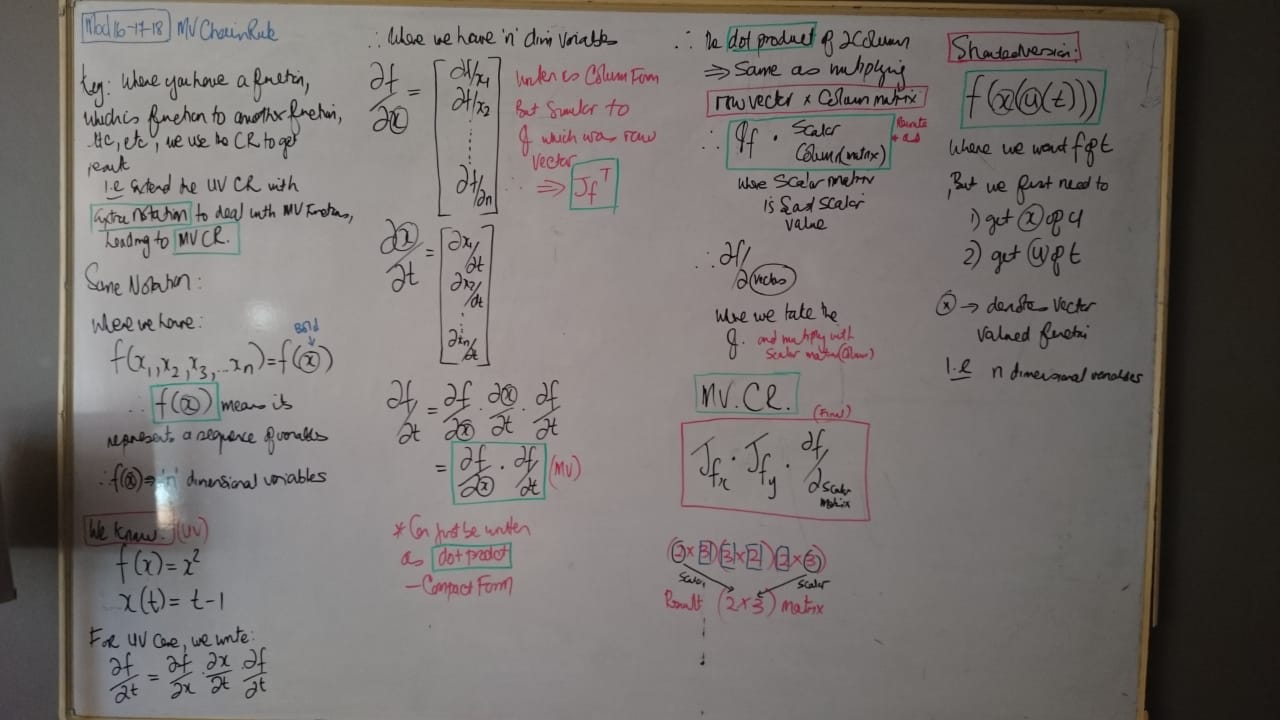 Mod 16-17-18 MV Chain Rule
Key: Where you have a function,
which is function to another function,
etc, etc, we use the CR to get
result
i.e extend the UV CR with
extra notation to deal with MV Functions,
leading to MV CR.
Same Notation:
Where we have:
Bold
f(x₁,x₂,x₃,...xₙ)=f(ⓧ)
∴ f(ⓧ) means its
represents a sequence of variables
∴ f(ⓧ) ⇒ 'n' dimensional variables
We know: (UV)
f(x) = x²
x(t) = t-1
For UV Case, we write:
∂f/∂t = ∂f/∂x · ∂x/∂t · ∂f/∂t
∴ Where we have 'n' dim variables
∂f/∂ⓧ = [∂f/x₁
∂f/x₂
⋮
∂f/∂n]
written as Column Form
But Similar to
J which was row
vector
∴ ⇒ Jfᵀ
∂ⓧ/∂t = [∂x₁/∂t
∂x₂/dt
⋮
∂xn/∂t]
∂f/∂t = ∂f/∂ⓧ · ∂ⓧ/∂t · ∂f/∂t
= ∂f/∂ⓧ · ∂f/∂t (MV)
* Can just be written
as dot product
- Compact Form
∴ The dot product of 2 Column
⇒ Same as multiplying
row vector x Column matrix
∴ Jf · Scalar
Column(matrix)
where Scalar matrix
is scalar
value
∴ ∂f/∂(vector)
Where we take the
J. and multiply with
Scalar matrix(Column)
MV. CR.
(Final)
Jfₓ · Jfᵧ · ∂f/∂Scalar
Matrix
(2×3)(3×2)(2×3)
Scalar Scalar
Result (2×3) matrix
Shortedversion:
f(ⓧ(ⓤ(t)))
Where we want f of t
, But we first need to
1) get ⓧ of u
2) get ⓤ of t
ⓧ → denotes vector
valued function
I.e n dimensional variables